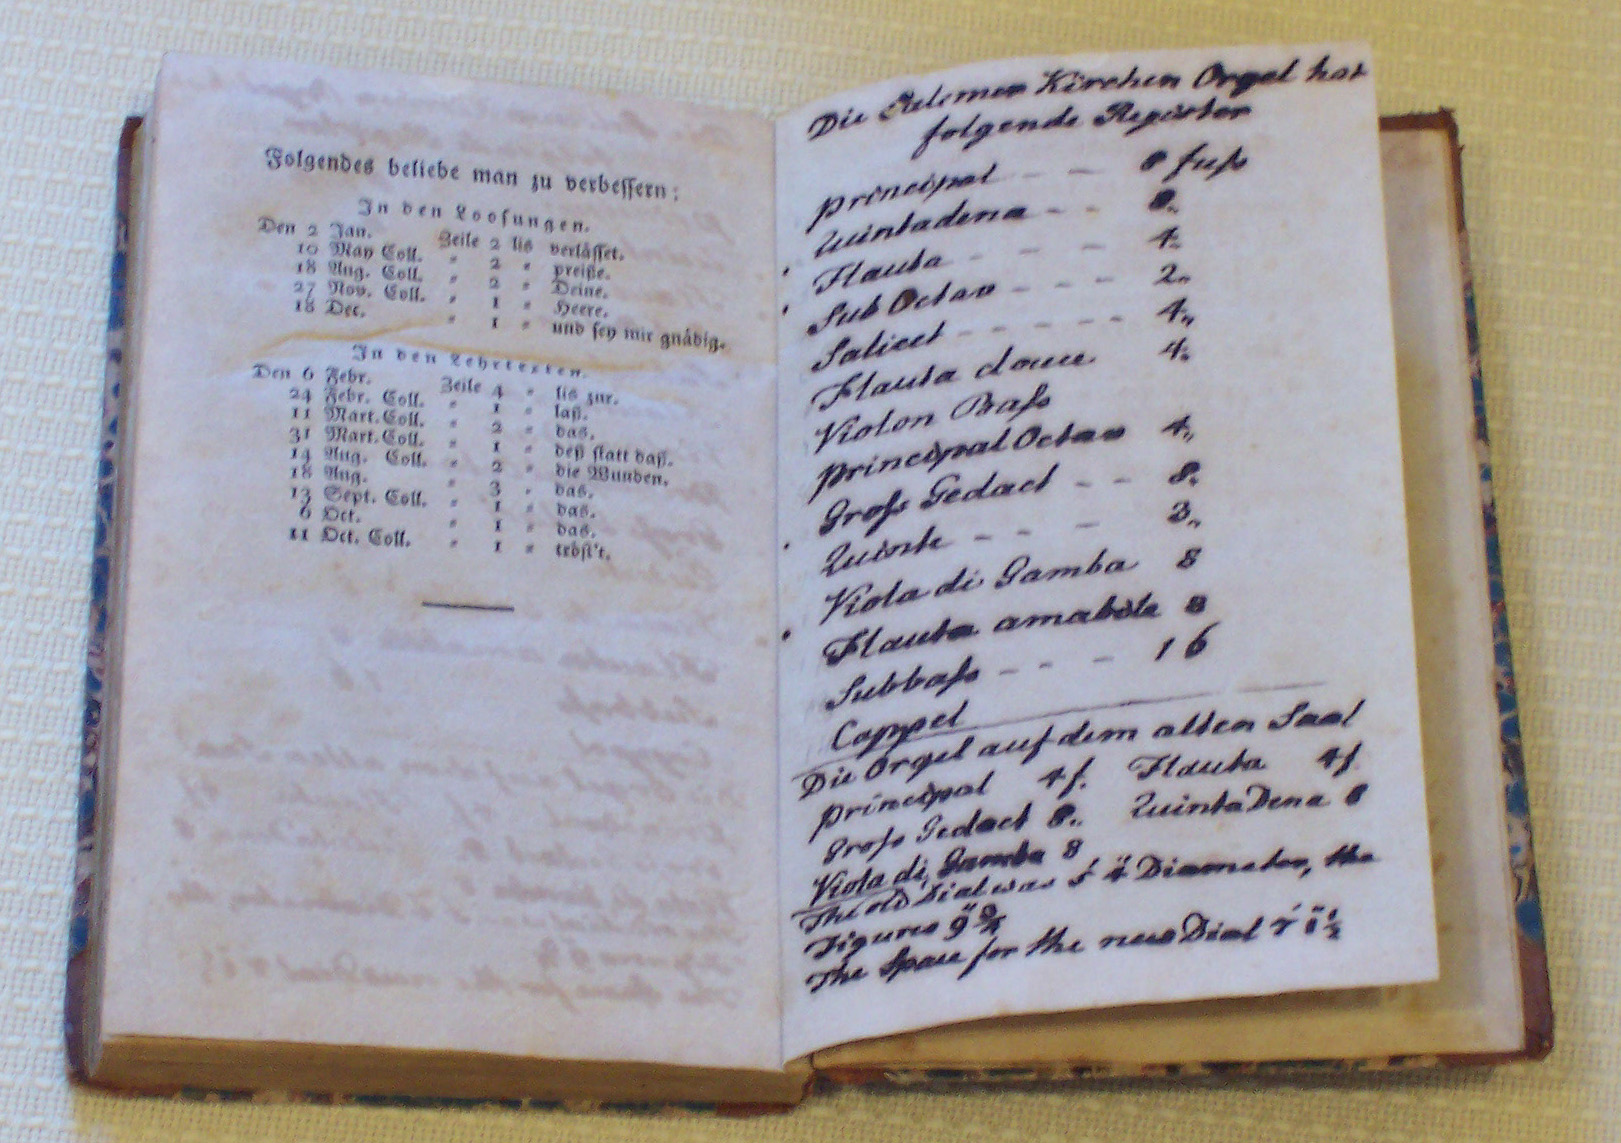 Folgendes beliebe man zu verbessern:
In den Loosungen.
Den 2 Jan. Zeile 2 lis verlässet.
10 May Coll. " 2 " preiße.
18 Aug. Coll. " 2 " Deine.
27 Nov. Coll. " 1 " Heere.
18 Dec. " 1 " und sey mir gnädig.
In den Lehrtexten.
Den 6 Febr. Zeile 4 " lis zur.
24 Febr. Coll. " 1 " laß.
11 Mart. Coll. " 2 " das.
31 Mart. Coll. " 1 " deß statt daß.
14 Aug. Coll. " 2 " die Wunden.
18 Aug. " 3 " das.
13 Sept. Coll. " 1 " das.
6 Oct. " 1 " das.
11 Oct. Coll. " 1 " tröst't.
Die Salemer Kirchen Orgel hat
folgende Register
Principal - - 8 fuß
Quintadena - - 8„
Flauta - - - 4„
Sub Octav - - - 2„
Salicet - - - - - - 4„
Flauta douce 4„
Violon Baß
Principal Octav 4„
Groß Gedact - - 8„
Quinte - - - 3„
Viola di Gamba 8
Flauta amabile 8
Subbaß - - - 16
Coppel
Die Orgel auf dem alten Saal
Principal 4 f. Flauta 4 f.
Groß Gedact 8„ QuintaDena 8
Viola di Gamba 8
The old Dial was 5' 4" Diameter, the
Figures 9" 3/4
The Space for the new Dial